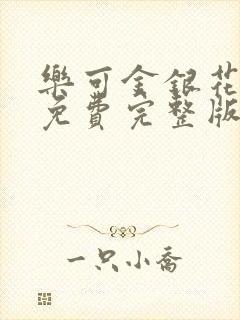 樂可金銀花
免費完整版
一只小喬